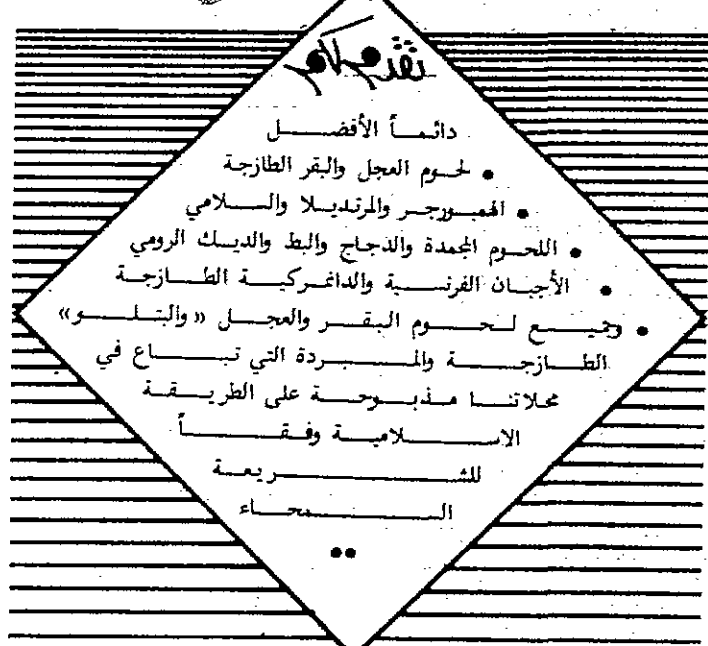 تقدم لكم
دائماً الأفضل
• لحوم العجل والبقر الطازجة
• الهمبورجر والمرتديلا والسلامي
• اللحوم المجمدة والدجاج والبط والديك الرومي
• الأجبان الفرنسية والدانمركية الطازجة
• وجميع لحوم البقر والعجل «والبتلو»
الطازجة والمبردة التي تباع في
محلاتنا مذبوحة على الطريقة
الاسلامية وفقاً
للشريعة
السمحاء